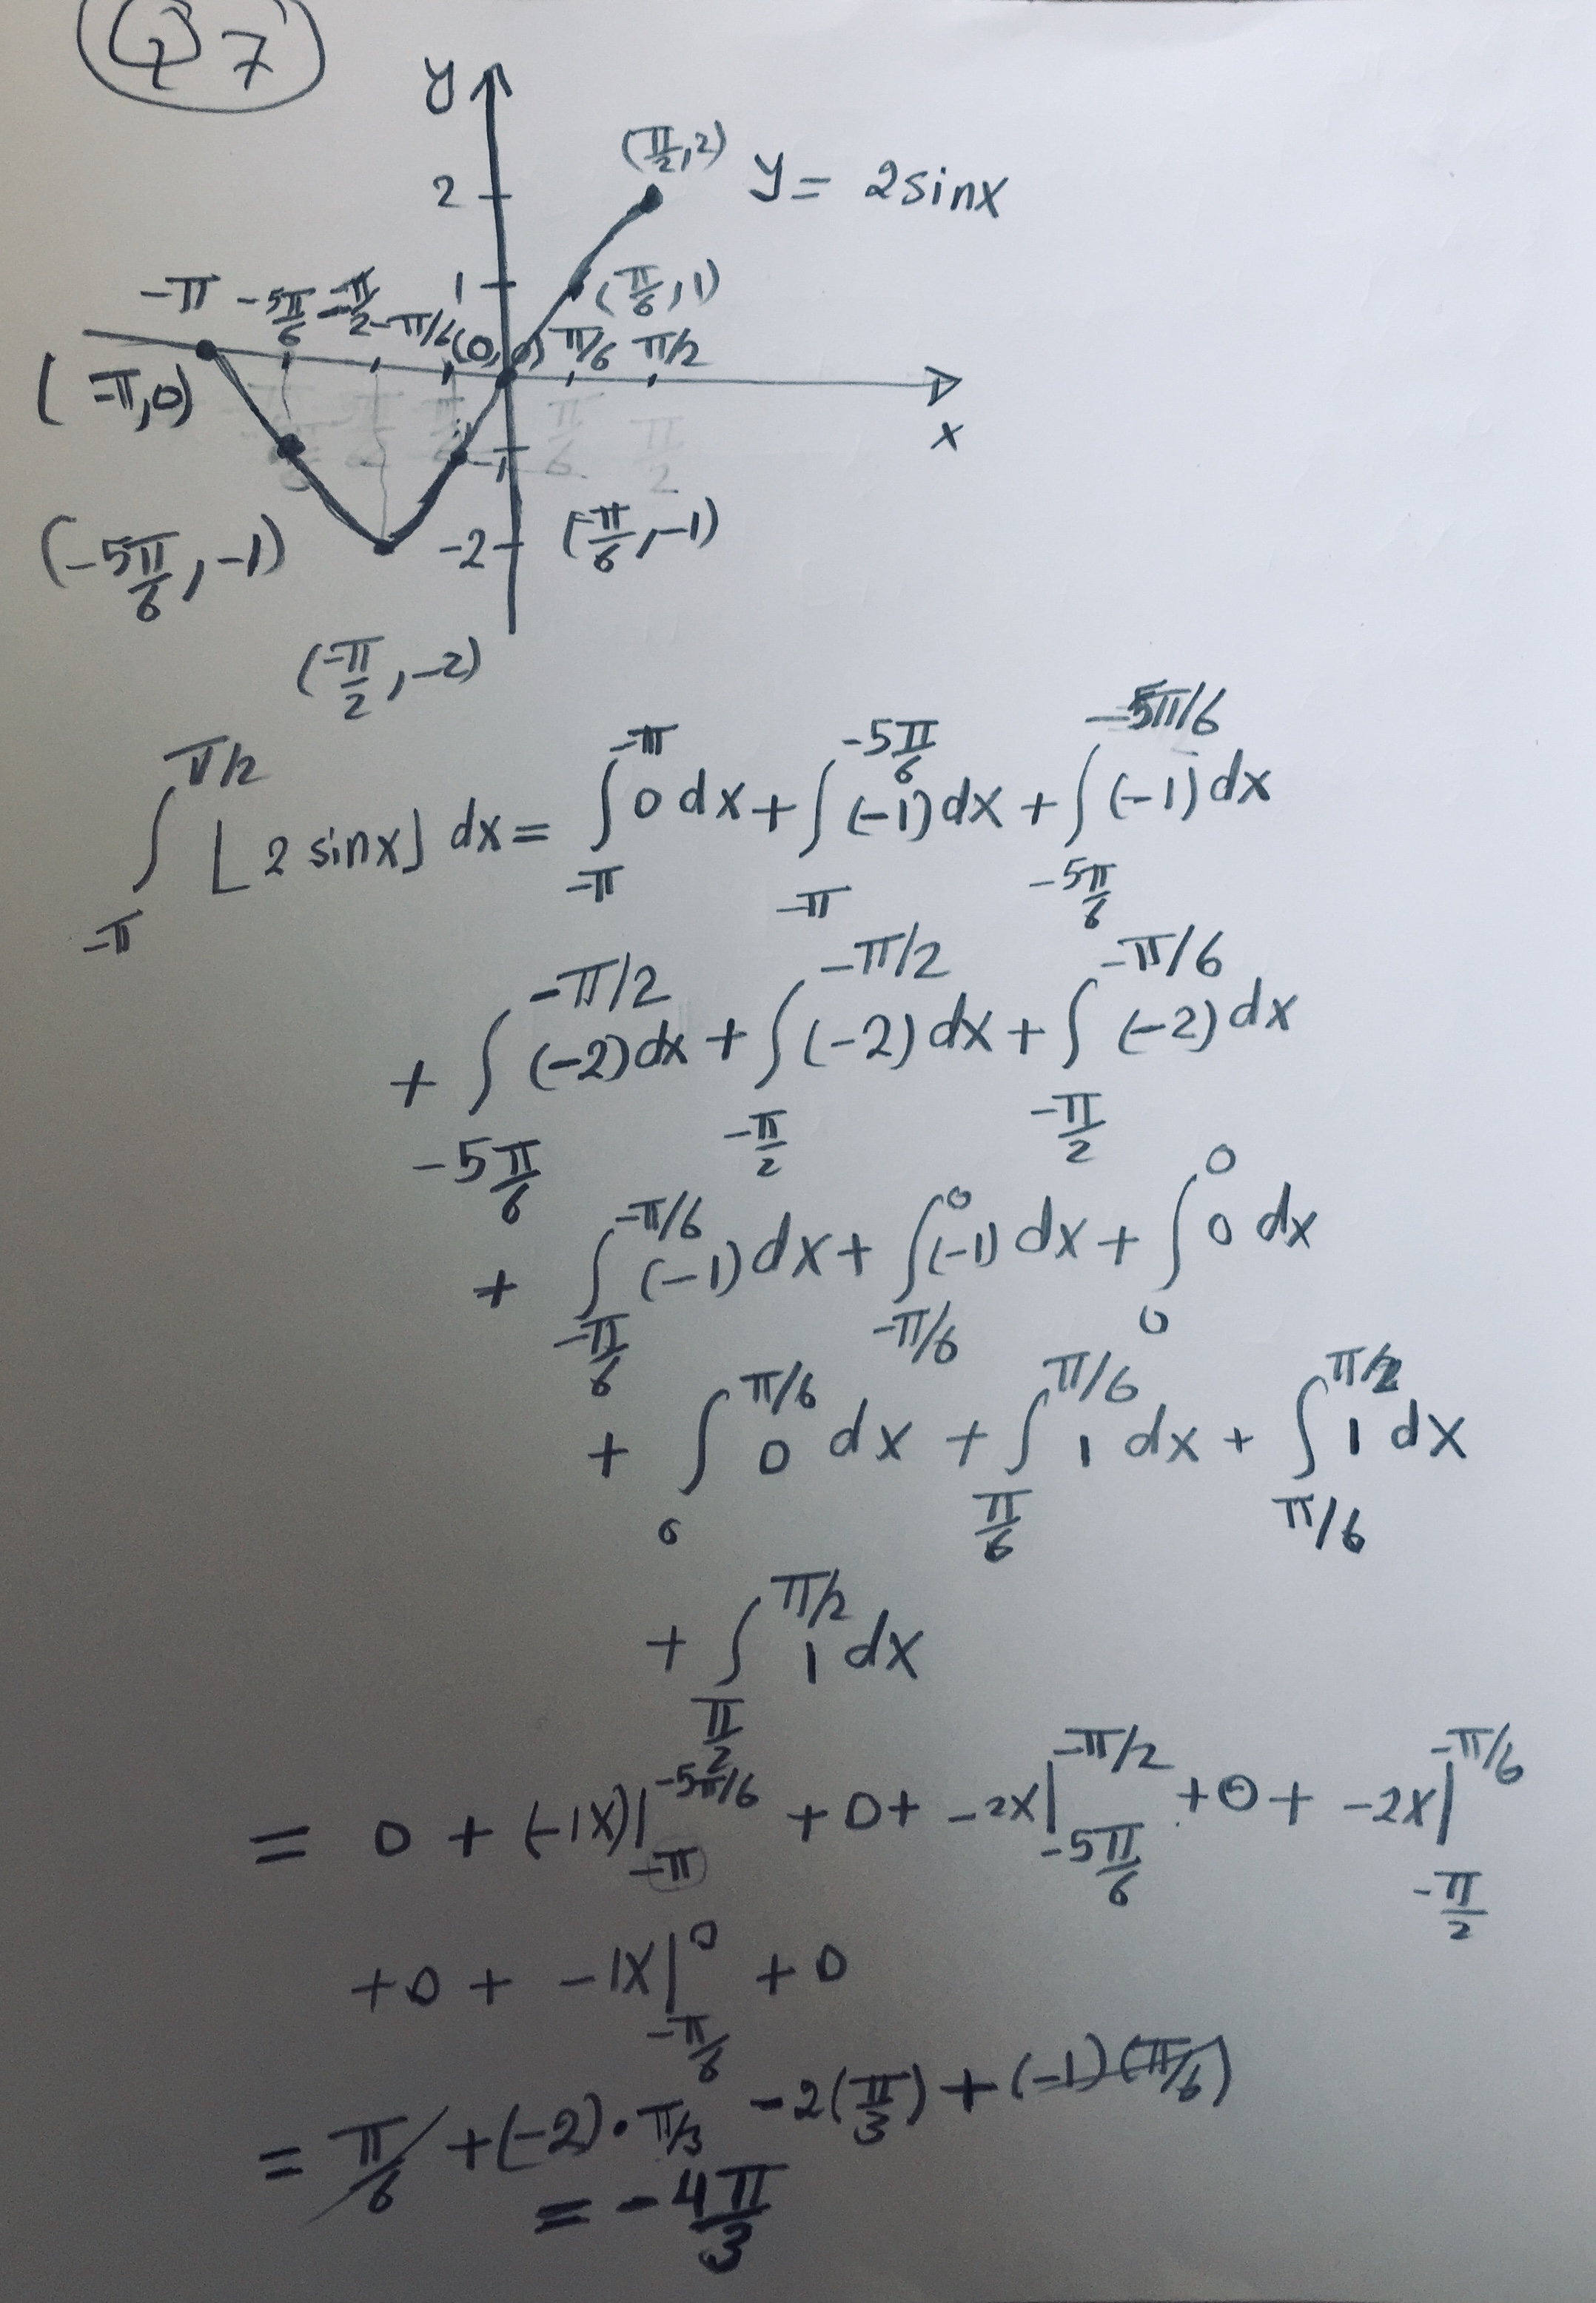 Q7
y
(π/2, 2) y = 2sinx
2
1 (π/6, 1)
-π -5π/6 -π/2 -π/6 (0,0) π/6 π/2
(-π, 0)
x
-1
(-5π/6, -1) -2 (-π/6, -1)
(-π/2, -2)
∫_{-π}^{π/2} ⌊2 sinx⌋ dx = ∫_{-π}^{-π} 0 dx + ∫_{-π}^{-5π/6} (-1) dx + ∫_{-5π/6}^{-5π/6} (-1) dx
+ ∫_{-5π/6}^{-π/2} (-2) dx + ∫_{-π/2}^{-π/2} (-2) dx + ∫_{-π/2}^{-π/6} (-2) dx
+ ∫_{-π/6}^{-π/6} (-1) dx + ∫_{-π/6}^{0} (-1) dx + ∫_{0}^{0} 0 dx
+ ∫_{0}^{π/6} 0 dx + ∫_{π/6}^{π/6} 1 dx + ∫_{π/6}^{π/2} 1 dx
+ ∫_{π/2}^{π/2} 1 dx
= 0 + (-1x)|_{-π}^{-5π/6} + 0 + -2x|_{-5π/6}^{-π/2} + 0 + -2x|_{-π/2}^{-π/6}
+0 + -1x|_{-π/6}^{0} + 0
= π/6 + (-2)·π/3 -2(π/3) + (-1)(π/6)
= -4π/3